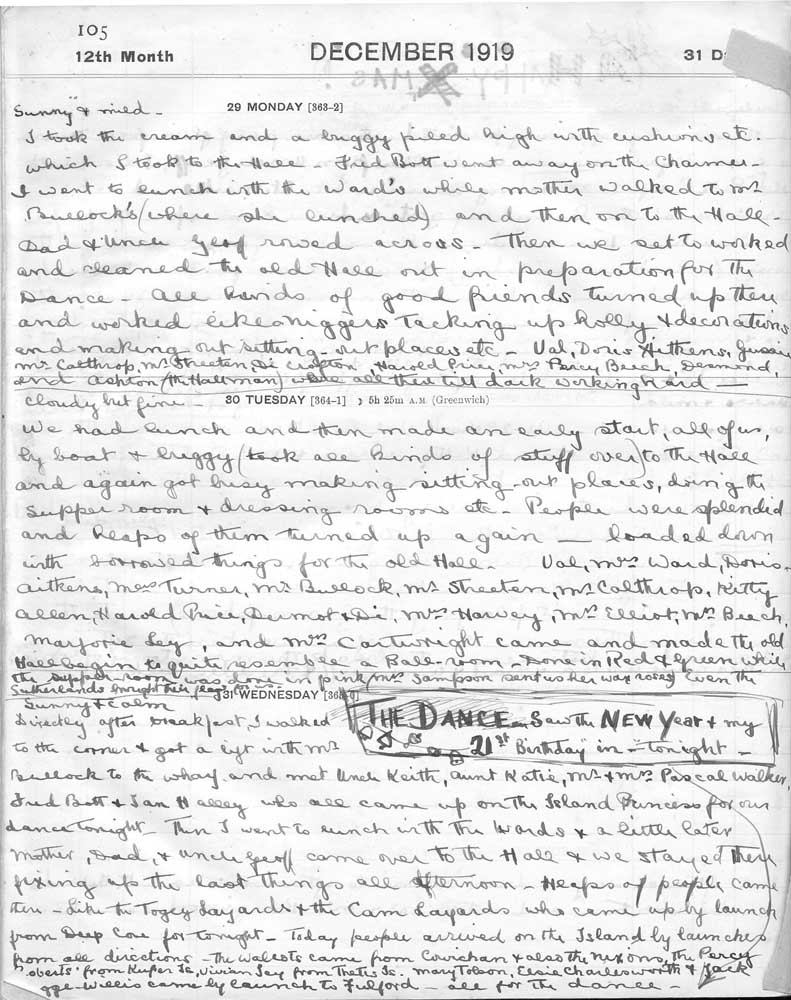 105
12th Month DECEMBER 1919 31 D
Sunny & mild - 29 MONDAY [363-2]
I took the cream and a buggy piled high with cushions etc.
which I took to the Hall - Fred Bott went away on the Charmer -
I went to lunch with the Ward's while mother walked to Mr
Bullock's (where she lunched) and then on to the Hall -
Dad & Uncle Geoff rowed across - Then we set to worked
and cleaned the old Hall out in preparation for the
Dance - All kinds of good friends turned up then
and worked like niggers tacking up holly & decorations
and making out sitting-out places etc - Val, Doris Aitkens, Jessie
Mr Calthrop, Mr Streeten, Di Crofton, Harold Price, Mrs Percy Beech, Desmond,
and Ashton (the Hallman) were all there till dark working hard -
Cloudy but fine - 30 TUESDAY [364-1] ☽ 5h 25m A.M. (Greenwich)
We had lunch and then made an early start, all of us,
by boat & buggy (took all kinds of stuff over) to the Hall
and again got busy making sitting-out places, doing the
supper room & dressing rooms etc - People were splendid
and heaps of them turned up again - loaded down
with borrowed things for the old Hall - Val, Mrs Ward, Doris
Aitkens, Mrs Turner, Mr Bullock, Mr Streeten, Mr Calthrop, Kitty
Allen, Harold Price, Dermot & Di, Mrs Harvey, Mrs Elliot, Mrs Beech,
Marjorie Ley, and Mrs Cartwright came and made the old
Hall begin to quite resemble a Ball-room - Done in Red & Green while
the supper-room was done in pink (Mrs Sampson sent us her wax roses) Even the
Sutherlands brought their flags to us - 31 WEDNESDAY [365-0]
Sunny & Calm
THE DANCE - Saw the NEW YEAR & my
21st Birthday "in" - tonight -
Directly after breakfast, I walked
to the corner & got a lift with Mr
Bullock to the wharf and met Uncle Keith, Aunt Katie, Mr & Mrs Pascal Walker,
Fred Bott & Ian Halley who all came up on the Island Princess for our
dance tonight - Then I went to lunch with the Wards & a little later
Mother, Dad, & Uncle Geoff came over to the Hall & we stayed there
fixing up the last things all afternoon - Heaps of people came
then - Like the Togey Layards & the Cam Layards who came up by launch
from Deep Cove for tonight - Today people arrived on the Island by launches
from all directions - the Walcots came from Cowichan & also the Nixons, the Percy
Roberts' from Kuper Is, Vivian Ley from Thetis Is. Mary Tolson, Elsie Charlesworth & Jack
Willis came by launch to Fulford - all for the dance -